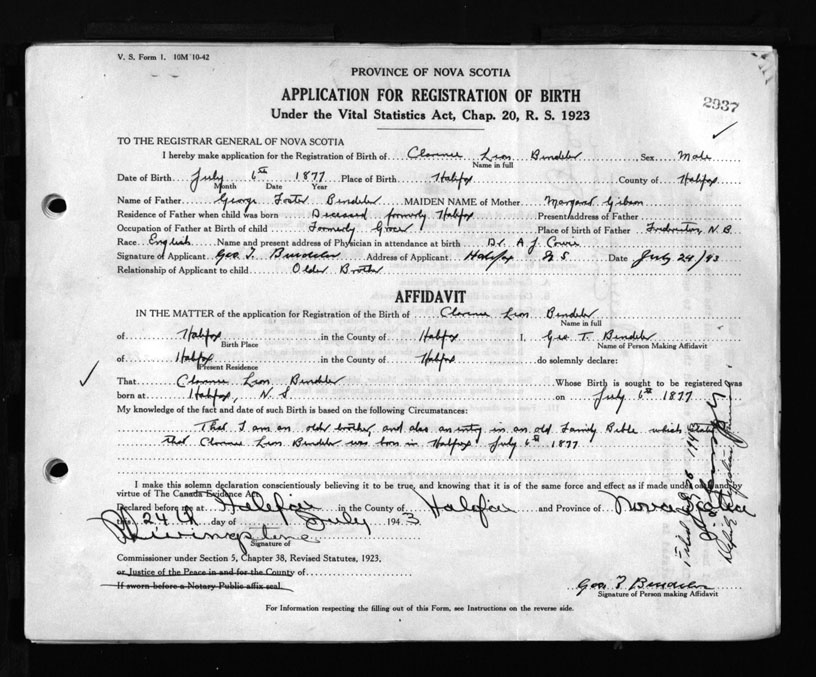 V. S. Form 1. 10M 10-42
PROVINCE OF NOVA SCOTIA
APPLICATION FOR REGISTRATION OF BIRTH
2937
Under the Vital Statistics Act, Chap. 20, R. S. 1923
TO THE REGISTRAR GENERAL OF NOVA SCOTIA
I hereby make application for the Registration of Birth of Clarence Leon Bendeler Sex Male
Name in full
Date of Birth July 6th 1877 Place of Birth Halifax County of Halifax
Month Date Year
Name of Father George Foster Bendeler MAIDEN NAME of Mother Margaret Gibson
Residence of Father when child was born Deceased formerly Halifax Present Address of Father
Occupation of Father at Birth of child Formerly Grocer Place of birth of Father Fredericton, N.B.
Race English Name and present address of Physician in attendance at birth Dr. A J. Cowie
Signature of Applicant Geo. T. Bendeler Address of Applicant Halifax N S Date July 24/43
Relationship of Applicant to child Older Brother
AFFIDAVIT
IN THE MATTER of the application for Registration of the Birth of Clarence Leon Bendeler
Name in full
of Halifax in the County of Halifax I, Geo T. Bendeler
Birth Place Name of Person Making Affidavit
of Halifax in the County of Halifax do solemnly declare:
Present Residence
That Clarence Leon Bendeler Whose Birth is sought to be registered was
born at Halifax, N. S on July 6th 1877
My knowledge of the fact and date of such Birth is based on the following Circumstances:
That I am an older brother, and also an entry in an old Family Bible which states
that Clarence Leon Bendeler was born in Halifax July 6th 1877
I make this solemn declaration conscientiously believing it to be true, and knowing that it is of the same force and effect as if made under oath and by
virtue of The Canada Evidence Act.
Declared before me at Halifax in the County of Halifax and Province of Nova Scotia
this 24th day of July 1943
Signature of
Commissioner under Section 5, Chapter 38, Revised Statutes, 1923.
or Justice of the Peace in and for the County of
If sworn before a Notary Public affix seal.
Geo. T. Bendeler
Signature of Person making Affidavit
For Information respecting the filling out of this Form, see Instructions on the reverse side.
Filed July 26 194